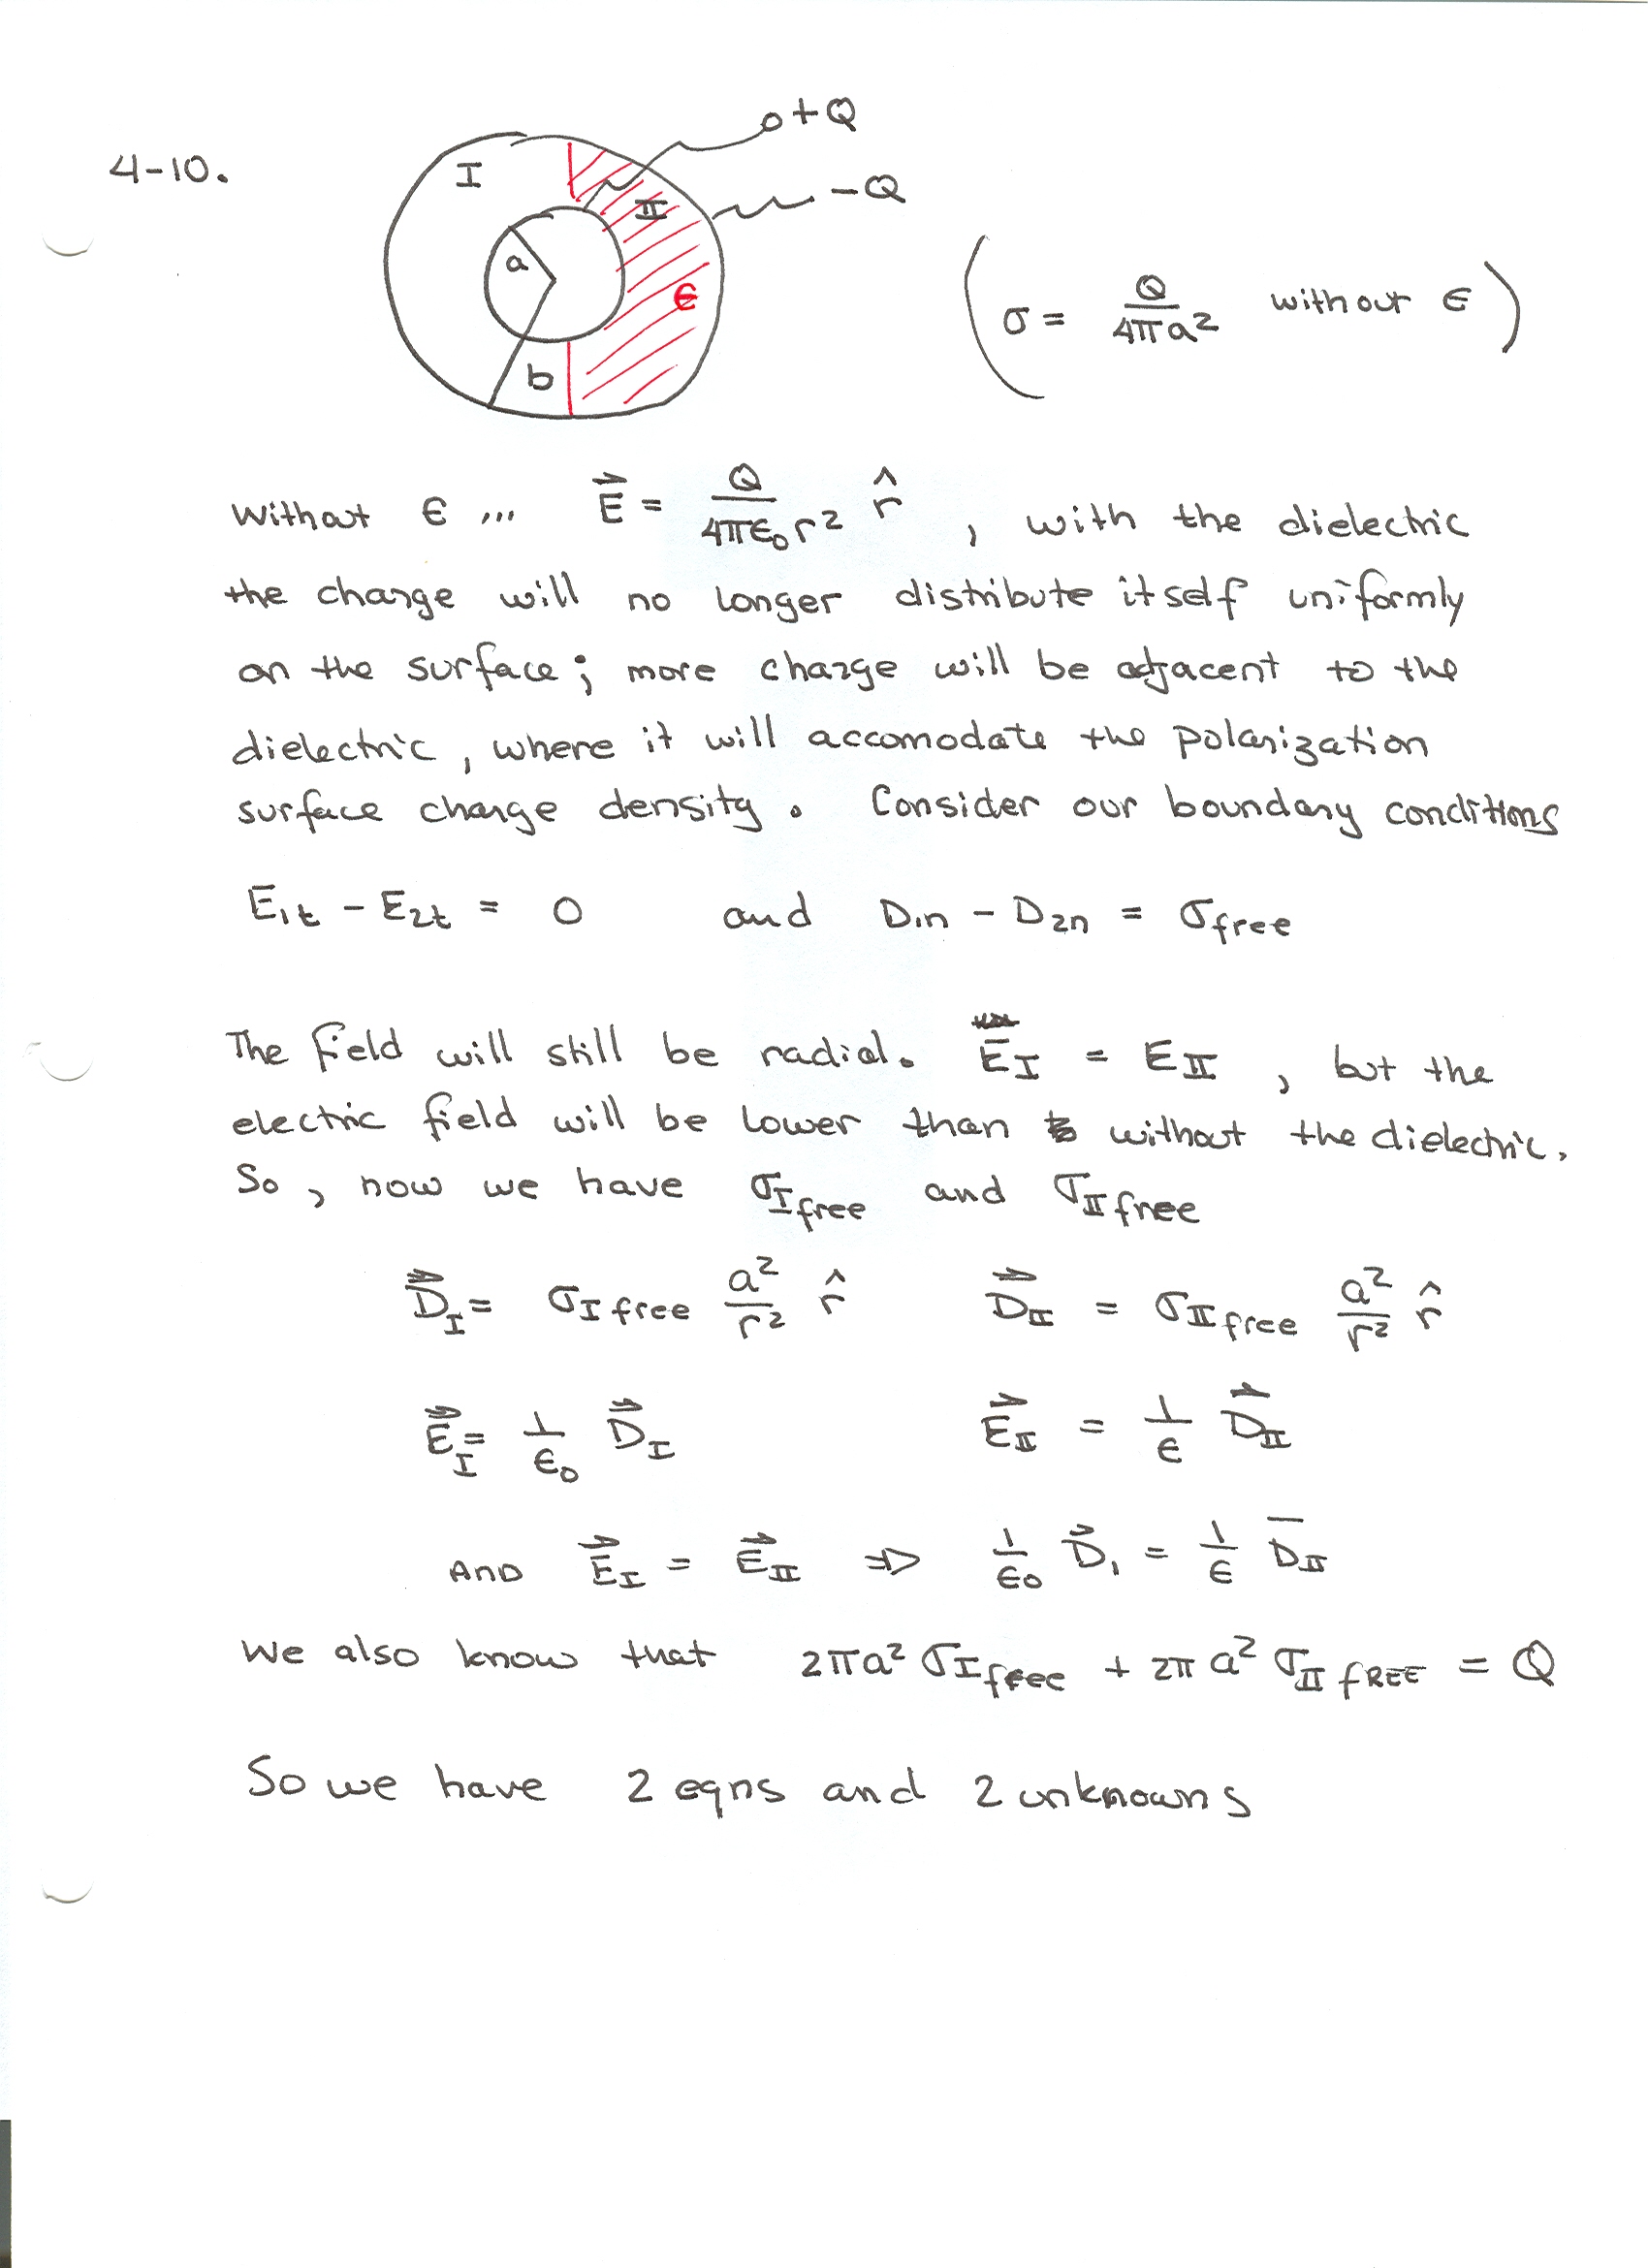 4-10.
I
II
+Q
-Q
a
b
ε
(σ = Q/4πa² without ε)
Without ε ... E⃗ = Q/4πε₀r² r̂ , with the dielectric
the charge will no longer distribute itself uniformly
on the surface; more charge will be adjacent to the
dielectric, where it will accomodate the polarization
surface charge density. Consider our boundary conditions
E₁t - E₂t = 0 and D₁n - D₂n = σfree
The field will still be radial. E_I = E_II , but the
electric field will be lower than without the dielectric.
So, now we have σ_I free and σ_II free
D⃗_I = σ_I free a²/r² r̂ D⃗_II = σ_II free a²/r² r̂
E⃗_I = 1/ε₀ D⃗_I E⃗_II = 1/ε D⃗_II
AND E⃗_I = E⃗_II ⇒ 1/ε₀ D⃗₁ = 1/ε D̄_II
We also know that 2πa² σ_I free + 2πa² σ_II FREE = Q
So we have 2 eqns and 2 unknowns